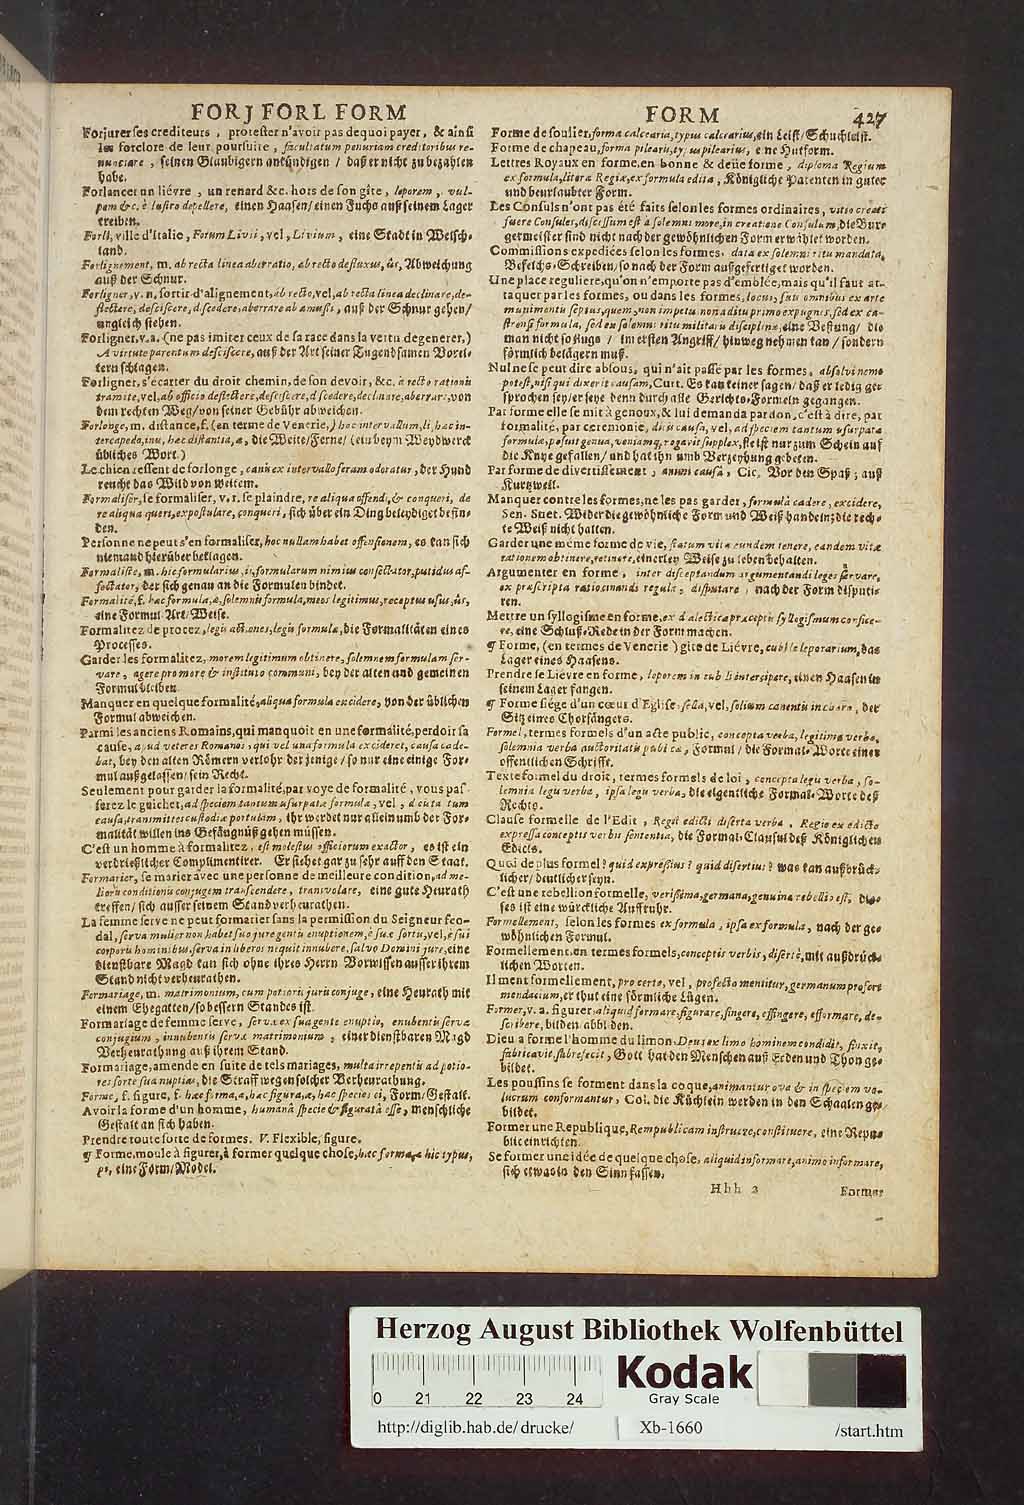 FORJ FORL FORM
Forjurer ses crediteurs, protester n'avoir pas dequoi payer, & ainsi
les forclore de leur poursuite, facultatum penuriam creditoribus re-
nunciare, seinen Glaubigern ankündigen / daß er nicht zu bezahlen
habe.
Forlancer un liévre, un renard &c. hors de son gîte, leporem, vul-
pem &c. è lustro depellere, einen Haasen / einen Fuchs auß seinem Lager
treiben.
Forli, ville d'Italie, Forum Livii, vel, Livium, eine Stadt in Welsch-
land.
Forlignement, m. ab recta linea aberratio, ab recto defluxus, ûs, Abweichung
auß der Schnur.
Forligner, v. n. sortir d'alignement, ab recto, vel, ab recta linea declinare, de-
flectere, desciscere, discedere, aberrare ab amussi, auß der Schnur gehen /
ungleich stehen.
Forligner, v. a. (ne pas imiter ceux de sa race dans la vertu, degenerer,)
A virtute parentum desciscere, auß der Art seiner Tugendsamen Vorel-
tern schlagen.
Forligner, s'écarter du droit chemin, de son devoir, &c. à recto rationis
tramite, vel, ab officio deflectere, desciscere, discedere, declinare, aberrare, von
dem rechten Weg / von seiner Gebühr abweichen.
Forlonge, m. distance, f. (en terme de Venerie,) hoc intervallum, li, hac in-
tercapedo, inis, hac distantia, æ, die Weite / Ferne / (ein beym Weydwerck
übliches Wort.)
Le chien ressent de forlonge, canis ex intervallo feram odoratur, der Hund
reucht das Wild von weitem.
Formaliser, se formaliser, v. r. se plaindre, re aliqua offendi, & conqueri, de
re aliqua queri, expostulare, conqueri, sich über ein Ding beleydiget befin-
den.
Personne ne peut s'en formaliser, hoc nullam habet offensionem, es kan sich
niemand hierüber beklagen.
Formaliste, m. hic formularius, ii, formularum nimius consectator, putidus af-
fectator, der sich genau an die Formulen bindet.
Formalité, f. hac formula, æ, solemnis formula, mos legitimus, receptus usus, ûs,
eine Formul-Art / Weise.
Formalitez de procez, legis actiones, legis formulæ, die Formalitäten eines
Processes.
Garder les formalitez, morem legitimum obtinere, solemnem formulam ser-
vare, agere pro more & instituto communi, bey der alten und gemeinen
Formul bleiben.
Manquer en quelque formalité, aliqua formula excidere, von der üblichen
Formul abweichen.
Parmi les anciens Romains, qui manquoit en une formalité, perdoit sa
cause, apud veteres Romanos, qui vel una formula excideret, causa cade-
bat, bey den alten Römern verlohr der jenige / so nur eine einige For-
mul außgelassen / sein Recht.
Seulement pour garder la formalité, par voye de formalité, vous pas-
serez le guichet, ad speciem tantum usurpatæ formula, vel, dicis tantum
causa, transmittes custodiæ portulam, ihr werdet nur allein umb der For-
malität willen ins Gefängnüß gehen müssen.
C'est un homme à formalitez, est molestus officiorum exactor, es ist ein
verdrießlicher Complimentirer. Er stehet gar zu sehr auff den Staat.
Formarier, se marier avec une personne de meilleure condition, ad me-
lioris conditionis conjugem transcendere, transvolare, eine gute Heurath
treffen / sich ausser seinem Stand verheurathen.
La femme serve ne peut formarier sans la permission du Seigneur feo-
dal, serva mulier non habet suo jure gentis enuptionem, è sua sortis, vel, è sui
corporis hominibus, serva in liberos nequit innubere, salvo Domini jure, eine
dienstbare Magd kan sich ohne ihres Herrn Vorwissen ausser ihrem
Stand nicht verheurathen.
Formariage, m. matrimonium, cum potioris juris conjuge, eine Heurath mit
einem Ehegatten / so bessern Standes ist.
Formariage de femme serve, servæ ex sua gente enuptio, enubentis servæ
conjugium, innubentis servæ matrimonium, einer dienstbaren Magd
Verheurathung auß ihrem Stand.
Formariage, amende en suite de tels mariages, multa irrepentis ad potio-
res sorte sua nuptias, die Straff wegen solcher Verheurathung.
Forme, f. figure, f. hæc forma, æ, hæc figura, æ, hæc species, ei, Form / Gestalt.
Avoir la forme d'un homme, humanâ specie & figuratâ esse, menschliche
Gestalt an sich haben.
Prendre toute sorte de formes. V. Flexible, figure.
¶ Forme, moule à figurer, à former quelque chose, hæc forma, æ hic typus,
pi, eine Form / Model.
FORM 427
Forme de soulier, forma calcearia, typus calcearius, ein Leist / Schuchleist.
Forme de chapeau, forma pilearis, typus pilearius, eine Hutform.
Lettres Royaux en forme, en bonne & deüe forme, diploma Regium
ex formula, literæ Regiæ, ex formula editæ, Königliche Patenten in guter
und beurlaubter Form.
Les Consuls n'ont pas été faits selon les formes ordinaires, vitio creati
fuere Consules, discessum est à solemni more, in creatione Consulum, die Bur-
germeister sind nicht nach der gewöhnlichen Form erwöhlet worden.
Commissions expediées selon les formes, data ex solemni ritu mandata,
Befelchs-Schreiben / so nach der Form außgefertiget worden.
Une place reguliere, qu'on n'emporte pas d'emblée, mais qu'il faut at-
taquer par les formes, ou dans les formes, locus, suis omnibus ex arte
munimentis septus, quem, non impetu non aditu primo expugnes, sed ex ca-
strensi formula, sed ex solemni ritu militaris disciplinæ, eine Vestung / die
man nicht so flugs / im ersten Angriff / hinweg nehmen kan / sondern
förmlich belägern muß.
Nul ne se peut dire absous, qui n'ait passé par les formes, absolvi nemo
potest, nisi qui dixerit causam, Curt. Es kan keiner sagen / daß er ledig ge-
sprochen sey / er seye denn durch alle Gerichts-Formeln gegangen.
Par forme elle se mit à genoux, & lui demanda pardon, c'est à dire, par
formalité, par ceremonie, dicis causa, vel, ad speciem tantum usurpata
formula, posuit genua, veniamq; rogavit supplex, sie ist nur zum Schein auf
die Knye gefallen / und hat ihn umb Verzeyhung gebeten.
Par forme de divertissement, animi causâ, Cic. Vor den Spaß; auß
Kurtzweil.
Manquer contre les formes, ne les pas garder, formulâ cadere, excidere,
Sen. Suet. Wider die gewöhnliche Form und Weiß handeln; die rech-
te Weiß nicht halten.
Garder une méme forme de vie, statum vitæ eundem tenere, eandem vitæ
rationem obtinere, retinere, einerley Weise zu leben behalten.
Argumenter en forme, inter disceptandum argumentandi leges servare,
ex præscripta ratiocinandi regula, disputare, nach der Form disputi-
ren.
Mettre un syllogisme en forme, ex dialecticæ præceptis syllogismum confice-
re, eine Schluß-Rede in der Form machen.
¶ Forme, (en termes de Venerie) gîte de Liévre, cubile leporarium, das
Lager eines Haasens.
Prendre le Liévre en forme, leporem in cubili intercipere, einen Haasen in
seinem Lager fangen.
¶ Forme siége d'un cœur d'Eglise, sella, vel, solium canentis in choro, der
Sitz eines Chorsängers.
Formel, termes formels d'un acte public, concepta verba, legitima verba,
solemnia verba auctoritatis publicæ, Formul / die Formal-Worte einer
offentlichen Schrifft.
Texte formel du droit, termes formels de loi, concepta legis verba, so-
lemnia legis verba, ipsa legis verba, die eigentliche Formal-Worte deß
Rechts.
Clause formelle de l'Edit, Regii edicti diserta verba, Regio ex edicto
expressa conceptis verbis sententia, die Formal-Clausul deß Königlichen
Edicts.
Quoi de plus formel? quid expressius? quid disertius? was kan außdrück-
licher / deutlicher seyn.
C'est une rebellion formelle, verissima, germana, genuina rebellio est, die-
ses ist eine würckliche Auffruhr.
Formellement, selon les formes ex formula, ipsa ex formula, nach der ge-
wöhnlichen Formul.
Formellement, en termes formels, conceptis verbis, disertè, mit außdrück-
lichen Worten.
Il ment formellement, pro certo, vel, profectò mentitur, germanum profert
mendacium, er thut eine förmliche Lügen.
Former, v. a. figurer, aliquid formare, figurare, fingere, effingere, efformare, de-
scribere, bilden, abbilden.
Dieu a formé l'homme du limon, Deus ex limo hominem condidit, finxit,
fabricavit, fabrefecit, Gott hat den Menschen auß Erden und Thon ge-
bildet.
Les poussins se forment dans la coque, animantur ova & in speciem vo-
lucrum conformantur, Col. die Küchlein werden in den Schaalen ge-
bildet.
Former une Republique, Rempublicam instruere, constituere, eine Repu-
blic einrichten.
Se former une idée de quelque chose, aliquid informare, animo informare,
sich etwas in den Sinn fassen.
Hhh 2 Former
Herzog August Bibliothek Wolfenbüttel
Kodak
Gray Scale
0 21 22 23 24
http://diglib.hab.de/drucke/ Xb-1660 /start.htm